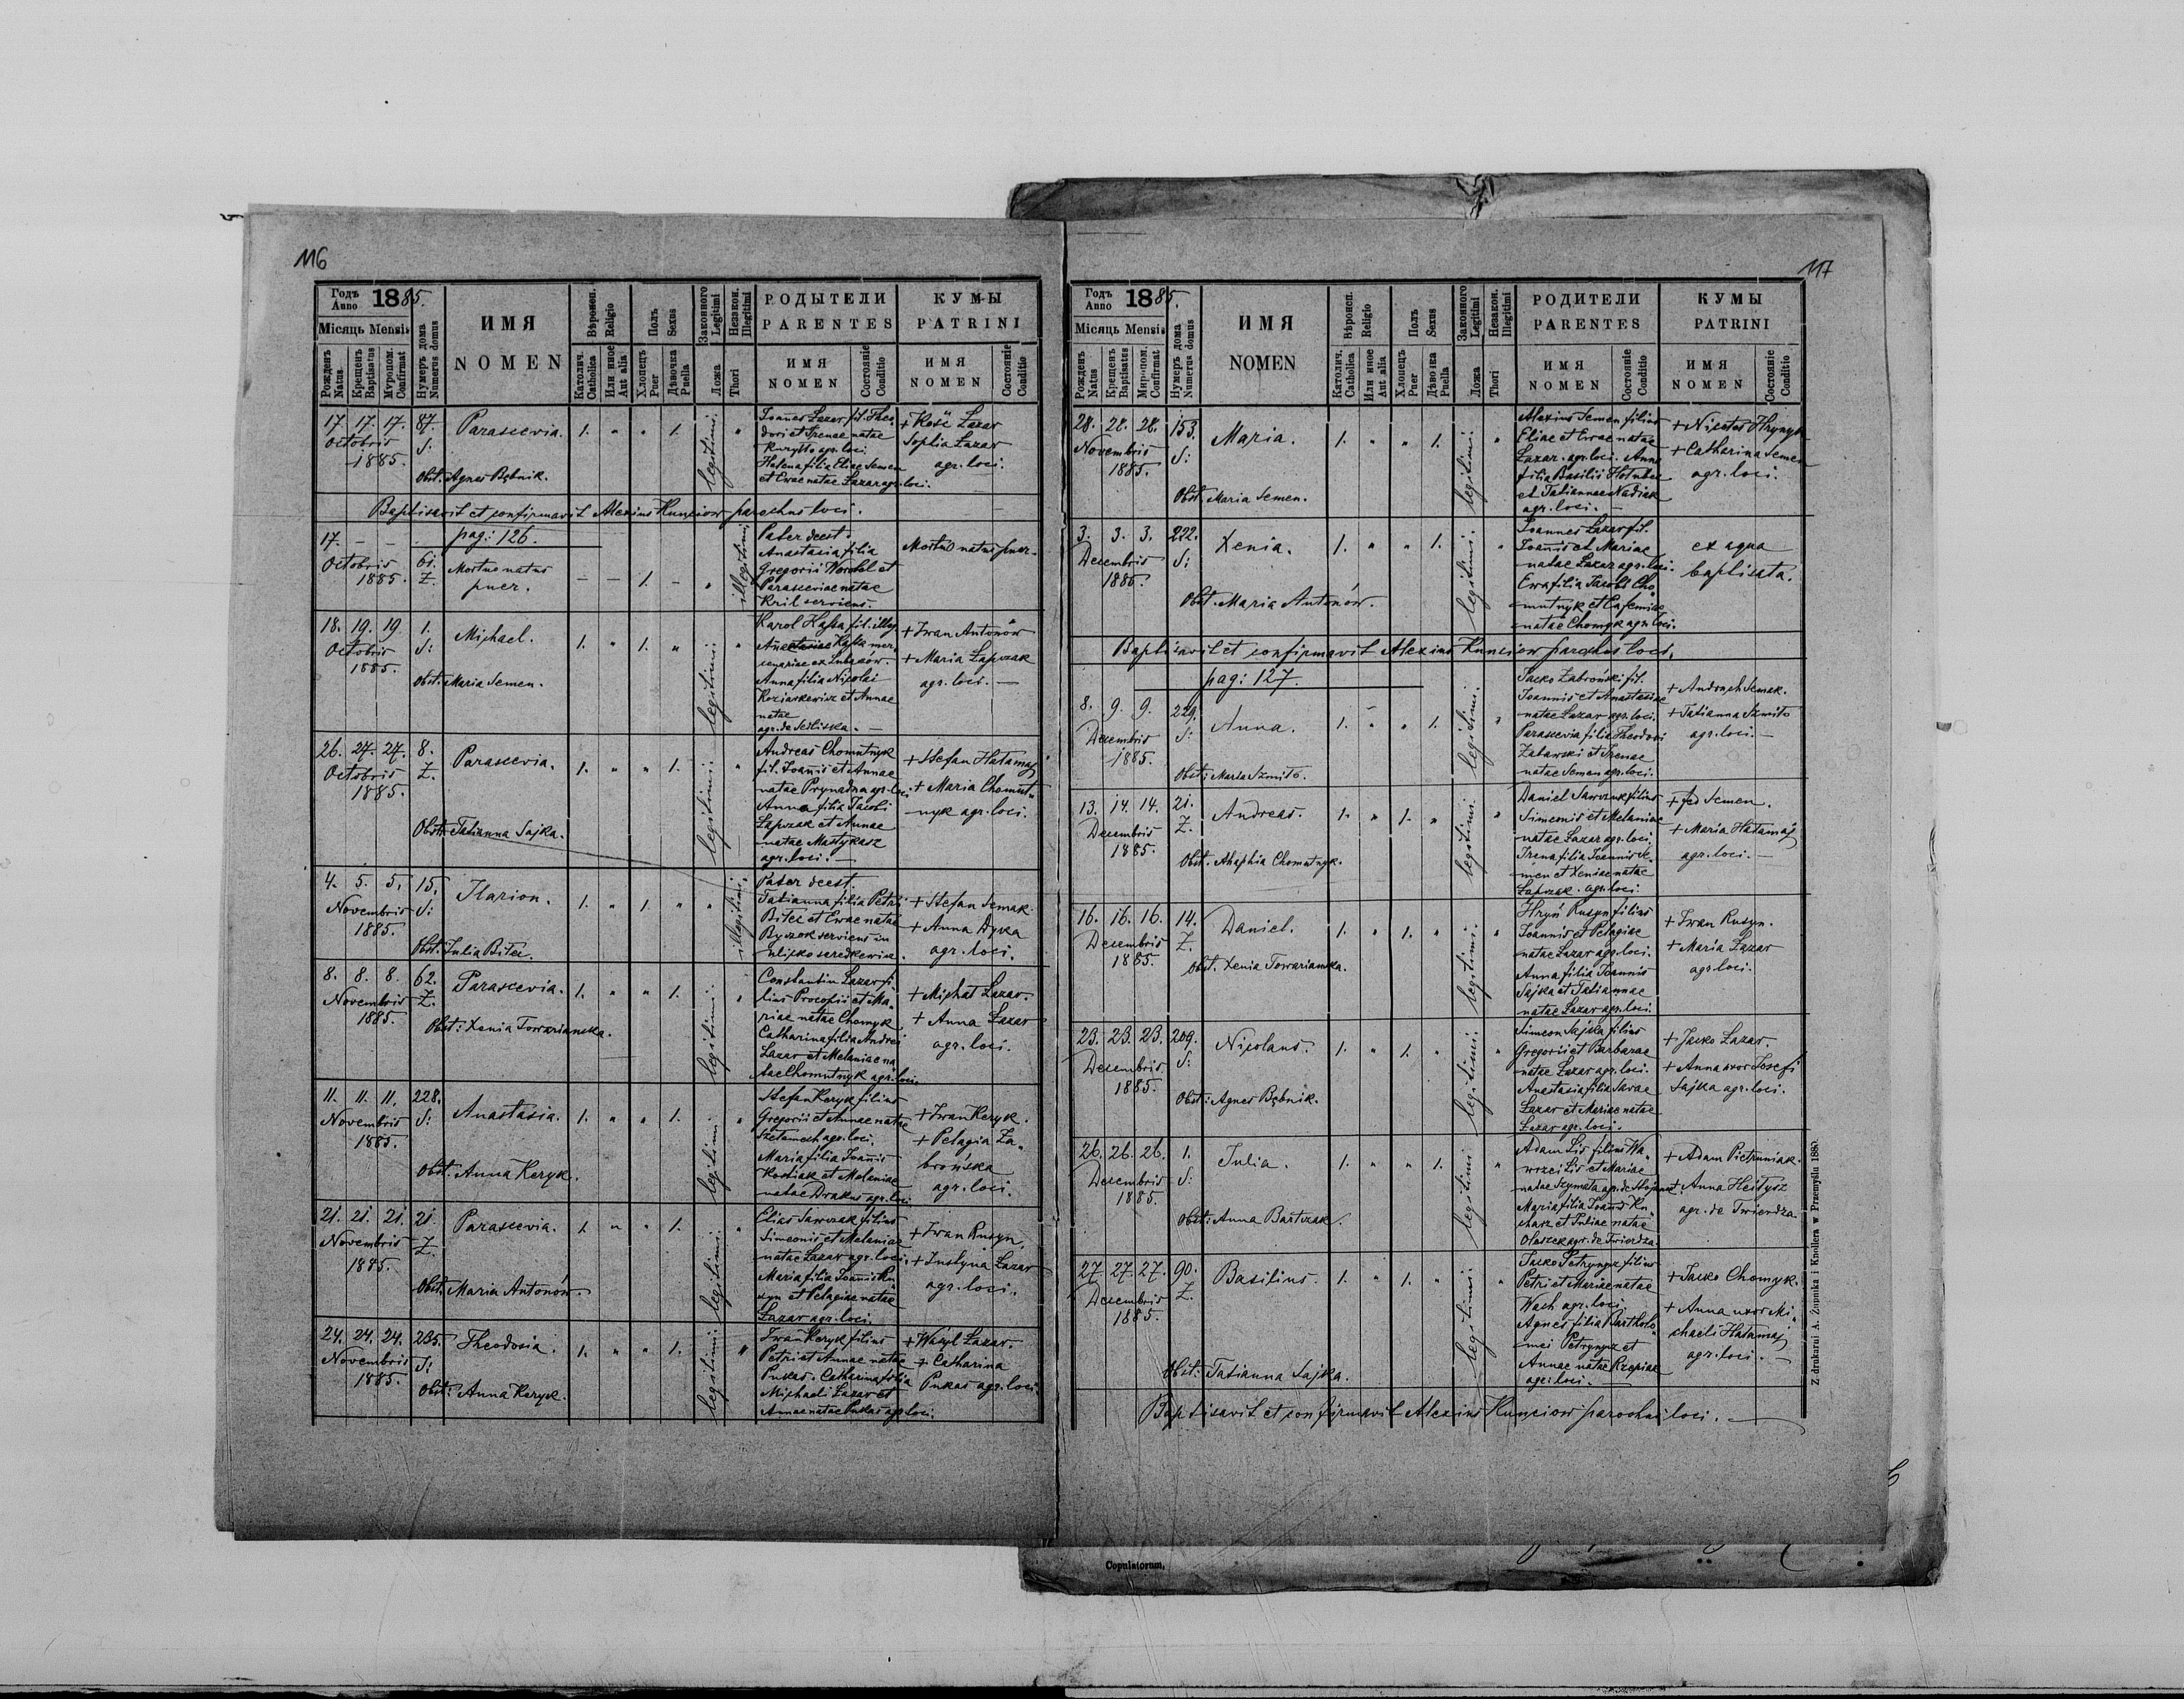 116
Годъ Anno 1885.
Місяць Mensis
Рожденъ Natus
Крещенъ Baptisatus
Муропом. Confirmat
Нумеръ дома Numerus domus
ИМЯ
NOMEN
Вѣроисп. Religio
Католич. Catholica
Или иное Aut alia
Полъ Sexus
Хлопецъ Puer
Дѣвочка Puella
Законного Legitimi
Незакон. Illegitimi
Ложа Thori
РОДЫТЕЛИ
PARENTES
ИМЯ NOMEN
Состояніе Conditio
КУМЫ
PATRINI
ИМЯ NOMEN
Состояніе Conditio
17. 17. 17. 87. Parascevia. 1. " " 1. legitimi. "
Octobris S:
1885.
Obst. Agnes Bębnik.
Joannes Lazar fil. Theo-
dori et Irenae natae
agr. loci.
Helena filia Eliae Semen
et Ewae natae Lazar agr. loci.
+ Kość Lazar
Sophia Lazar
agr. loci.
Baptisavit et confirmavit Alexius Kunciow parochus loci.
pag: 126.
17. – –
Octobris 61.
1885. Z.
Mortuo natus
puer. – – 1. – " illegitimi.
Pater deest.
Anastasia filia
Gregorii et
Parasceviae natae
Kril serviens.
Mortuo natus puer.
18. 19. 19. 1. Michael. 1. " 1. " legitimi. "
Octobris S:
1885.
Obst. Maria Semen.
Karol Hajka fil. illeg.
Anastasiae Hajka mer-
cenariae ex Lubaczów.
Anna filia Nicolai
Koziarkewicz et Annae
natae
agr. de Sedliska. –
+ Iwan Antonów
+ Maria Łapczak
agr. loci. –
26. 27. 27. 8. Parascevia. 1. " " 1. legitimi. "
Octobris Z.
1885.
Obst: Tatianna Sajka.
Andreas Chomutnyk
fil. Joannis et Annae
natae Prynadna agr. loci.
Anna filia Jacobi
Łapczak et Annae
natae Mastykasz
agr. loci. –
+ Stefan Hatamaj
+ Maria Chomut-
nyk agr. loci.
4. 5. 5. 15. Ilarion. 1. " 1. " " illegitimi.
Novembris S:
1885.
Obst: Julia Bitcz.
Pater deest.
Tatianna filia Petri
et Ewae natae
Byczek serviens in
+ Stefan Semak.
+ Anna Dyka
agr. loci.
8. 8. 8. 62. Parascevia. 1. " " 1. legitimi. "
Novembris Z.
1885.
Obst: Xenia Towarianska.
Constantin Lazar fi-
lius Procopii et Ma-
riae natae Chomyk
Catharina filia Andrei
Lazar et Melaniae na-
tae Chomutnyk agr. loci.
+ Michał Lazar.
+ Anna Lazar
agr. loci.
11. 11. 11. 228. Anastasia. 1. " " 1. legitimi. "
Novembris S:
1885.
Obst. Anna Keryk.
Stefan Keryk filius
Gregorii et Annae natae
agr. loci.
Maria filia Joannis
Kostiak et Melaniae
natae Drakus agr. loci.
+ Iwan Keryk.
+ Pelagia Za-
brońska
agr. loci.
21. 21. 21. 21. Parascevia. 1. " " 1. legitimi. "
Novembris Z.
1885.
Obst. Maria Antonów.
Elias Sawczak filius
Simeonis et Melaniae
natae Lazar agr. loci.
Maria filia Joannis Ru-
syn et Pelagiae natae
Lazar agr. loci.
+ Iwan Rusyn.
+ Justyna Lazar
agr. loci.
24. 24. 24. 235. Theodosia. 1. " " 1. legitimi. "
Novembris S:
1885.
Obst: Anna Keryk.
Iwan Keryk filius
Petri et Annae natae
Pukas. Catharina filia
Michaeli Lazar et
Annae natae Pukas agr. loci.
+ Wasyl Lazar.
+ Catharina
Pukas agr. loci.
117
Годъ Anno 1885.
Місяць Mensis
Рожденъ Natus
Крещенъ Baptisatus
Муропом. Confirmat
Нумеръ дома Numerus domus
ИМЯ
NOMEN
Вѣроисп. Religio
Католич. Catholica
Или иное Aut alia
Полъ Sexus
Хлопецъ Puer
Дѣвочка Puella
Законного Legitimi
Незакон. Illegitimi
Ложа Thori
РОДИТЕЛИ
PARENTES
ИМЯ NOMEN
Состояніе Conditio
КУМЫ
PATRINI
ИМЯ NOMEN
Состояніе Conditio
28. 28. 28. 153. Maria. 1. " " 1. legitimi. "
Novembris S:
1885.
Obst. Maria Semen.
Alexius Semen filius
Eliae et Ewae natae
Lazar. agr. loci. Anna
filia Basilii
et Tatiannae Nadiak
agr. loci. –
+ Nicetas Hrynyk
+ Catharina Semen
agr. loci.
3. 3. 3. 222. Xenia. 1. " " 1. legitimi. "
Decembris S:
1885.
Obst. Maria Antonów.
Joannes Lazar fil.
Joannis et Mariae
natae Lazar agr. loci.
Ewa filia Jacobi Cho-
mutnyk et Eufemiae
natae Chomyk agr. loci.
ex aqua
baptisata.
Baptisavit et confirmavit Alexius Kunciow parochus loci.
pag: 127.
8. 9. 9. 229. Anna. 1. " " 1. legitimi. "
Decembris S:
1885.
Obst: Maria Szmiło.
Jacko Zabroński fil.
Joannis et Anastasiae
natae Lazar agr. loci.
Parascevia filia Theodori
Zabawski et Irenae
natae Semen agr. loci.
+ Andruch Semak.
+ Tatianna Szmiło
agr. loci. –
13. 14. 14. 21. Andreas. 1. " 1. " legitimi. "
Decembris Z.
1885.
Obst. Ahaphia Chomutnyk.
Daniel Sawczuk filius
Simeonis et Melaniae
natae Lazar agr. loci.
Irena filia Joannis Se-
men et Xeniae natae
Łapczak. agr. loci.
+ Fed Semen.
+ Maria Hatamaj
agr. loci. –
16. 16. 16. 14. Daniel. 1. " 1. " legitimi. "
Decembris Z.
1885.
Obst. Xenia Towarianska.
Hryń Rusyn filius
Joannis et Pelagiae
natae Lazar agr. loci.
Anna filia Joannis
Sajka et Tatiannae
natae Lazar agr. loci.
+ Iwan Rusyn.
+ Maria Lazar
agr. loci.
23. 23. 23. 209. Nicolaus. 1. " 1. " legitimi. "
Decembris S:
1885.
Obst: Agnes Bębnik.
Simeon Sajka filius
Gregorii et Barbarae
natae Lazar agr. loci.
Anastasia filia Savae
Lazar et Mariae natae
Lazar agr. loci.
+ Jacko Lazar.
+ Anna uxor Josefi
Sajka agr. loci.
26. 26. 26. 1. Julia. 1. " " 1. legitimi "
Decembris S:
1885.
Obst: Anna Bartczak.
Adam Lis filius Wa-
wrzei Lis et Mariae
natae Szymata agr. de
Maria filia Joannis Ku-
charz et Juliae natae
Oleszek agr. de Twierdza.
+ Adam Pietruniak.
+ Anna Hejtysz
agr. de Twierdza.
27. 27. 27. 90. Basilius. 1. " 1. " legitimi. "
Decembris Z.
1885.
Obst: Tatianna Sajka.
Jacko Petrynycz filius
Petri et Mariae natae
Wach agr. loci.
Agnes filia Bartholo-
mei Petrynycz et
Annae natae Rzepiak
agr. loci. –
+ Jacko Chomyk.
+ Anna uxor Mi-
chaeli Hatamaj
agr. loci. –
Baptisavit et confirmavit Alexius Kunciow parochus loci. –
Z drukarni A. Żupnika i Knollera w Przemyślu 1880.
Copulatorum.